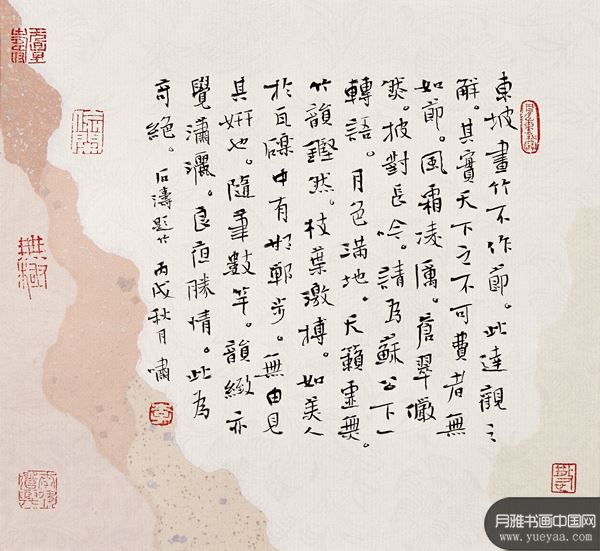 東坡畫竹不作節。此達觀之
解。其實天下之不可費者無
如節。風霜凌厲。蒼翠儼
然。披對長吟。請為蘇公下一
轉語。月色滿地。天籟虛無。
竹韻鏗然。枝葉激搏。如美人
於瓦礫中有邯鄲步。無由見
其妍也。隨筆數竿。韻緻亦
覺瀟灑。良夜勝情。此為
奇絕。石濤題竹 丙戌秋月 嘯
月雅书画中国网
www.yueyaa.com